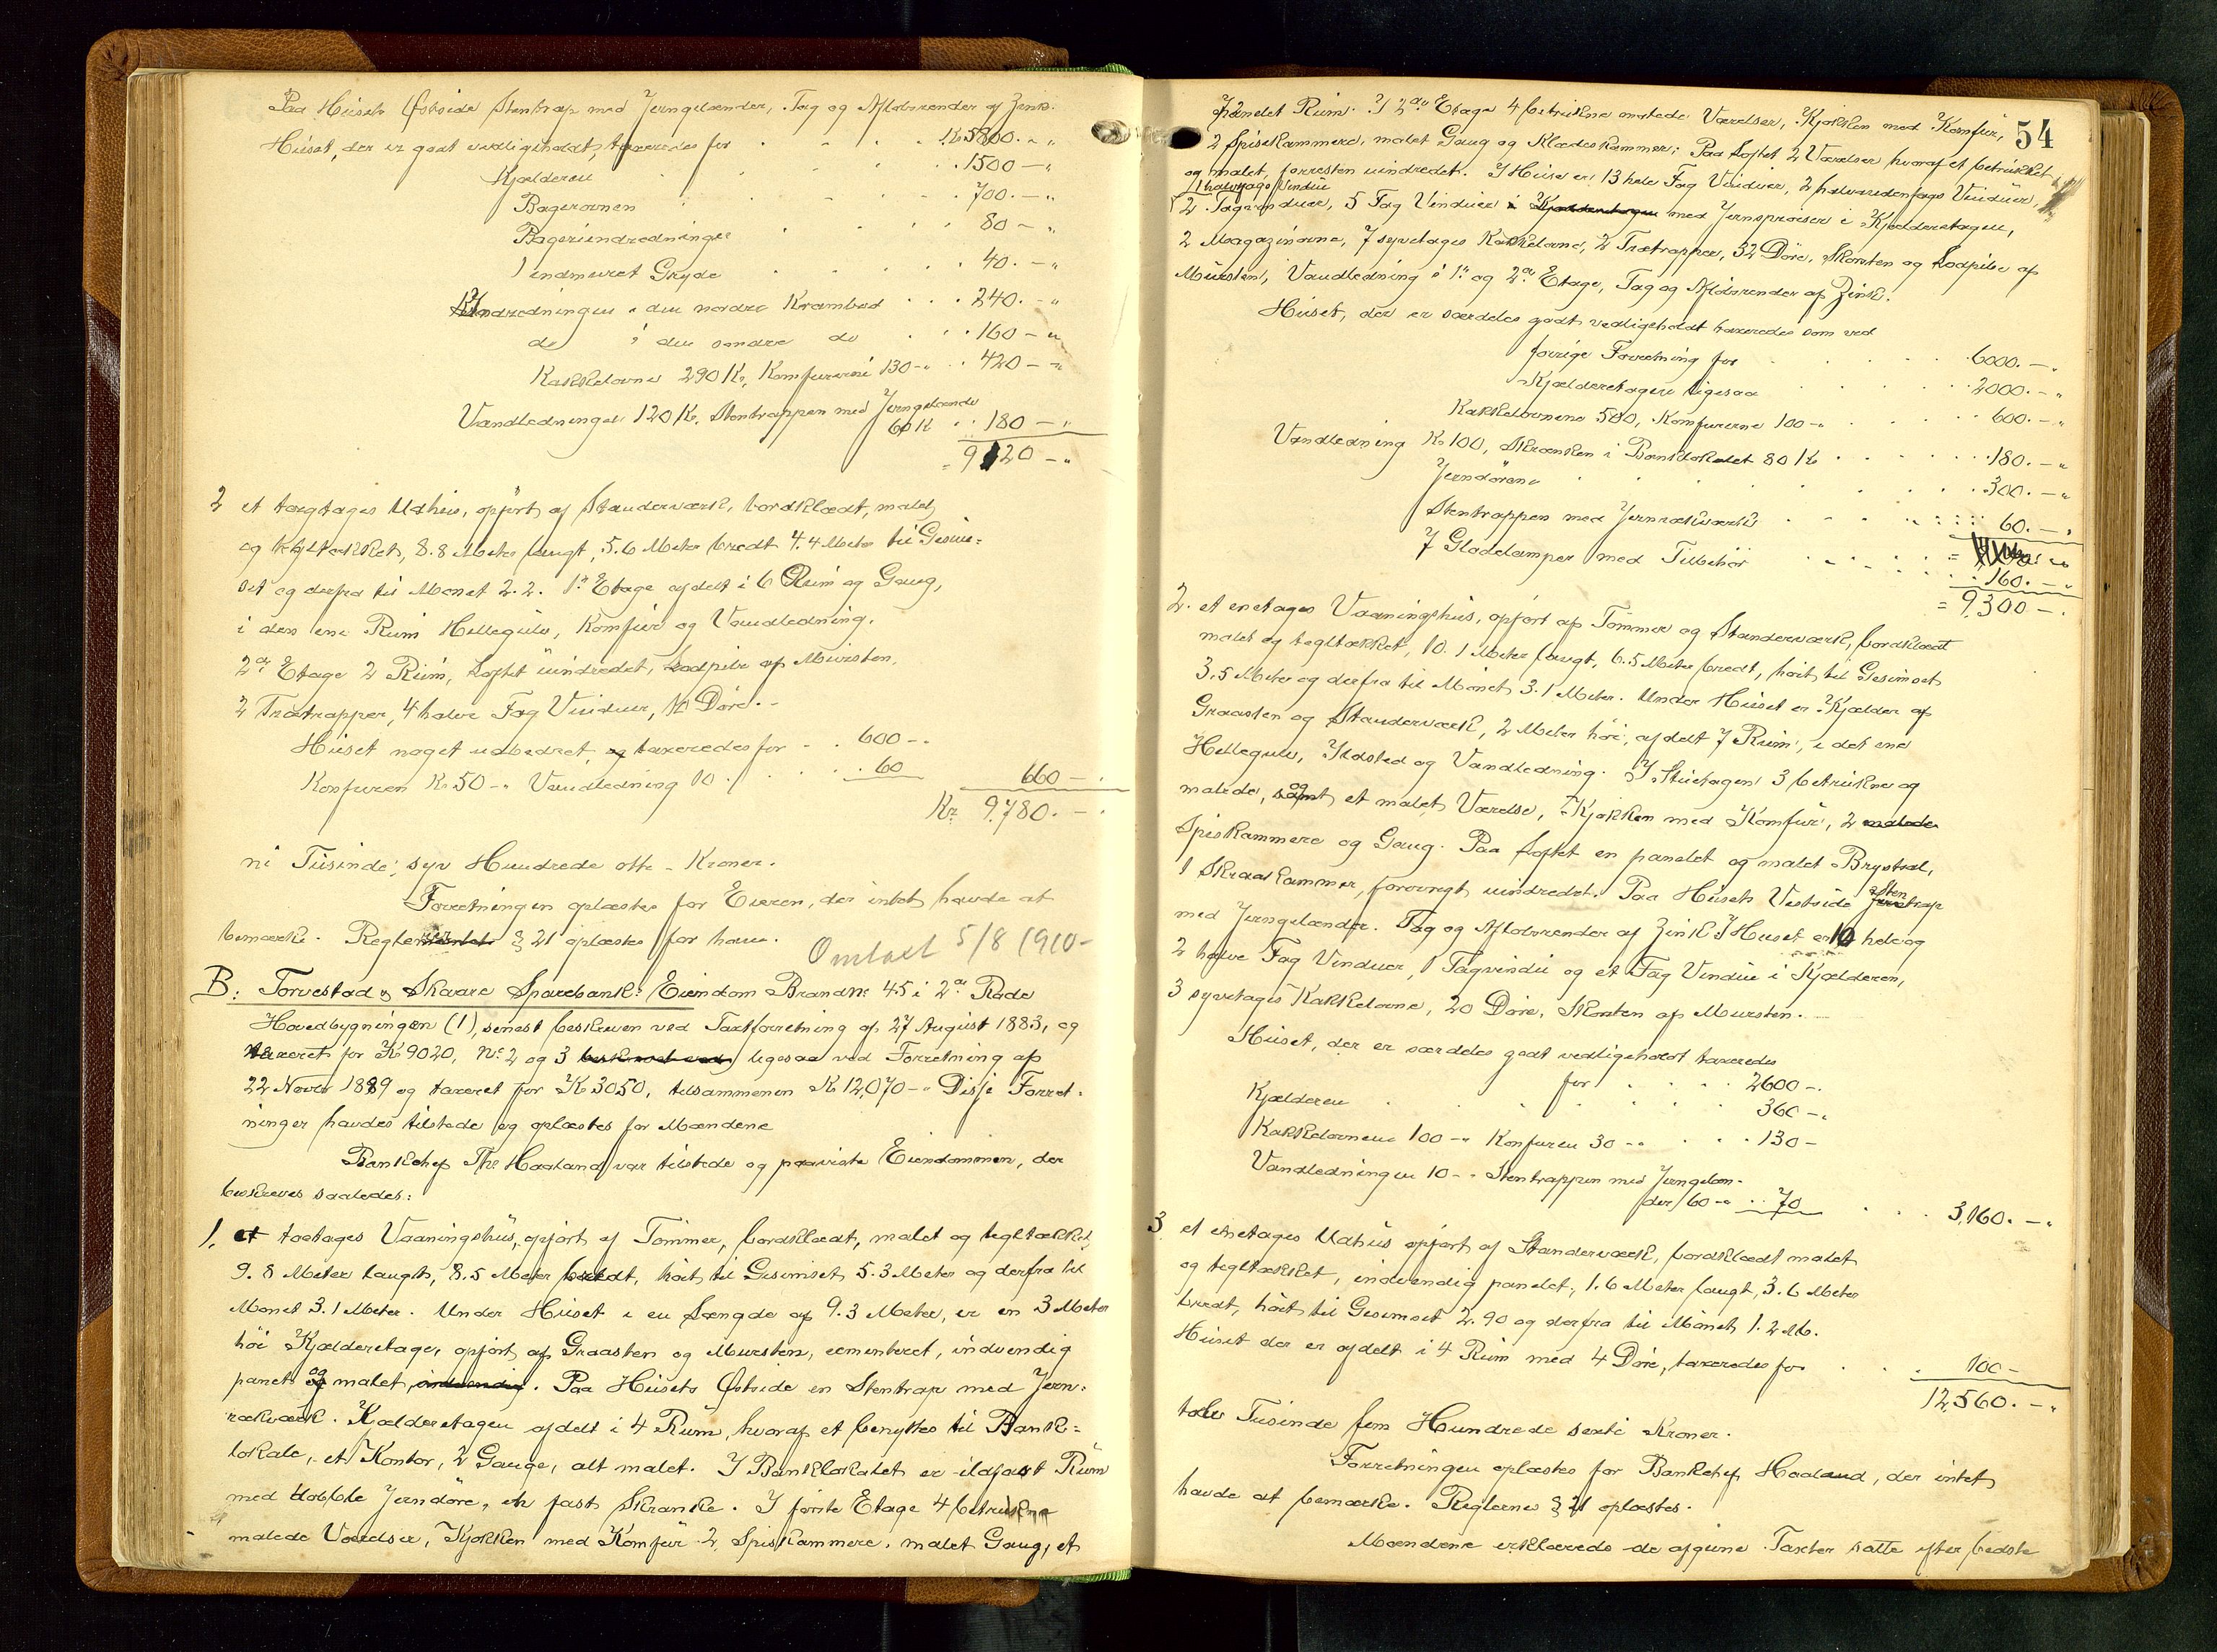 Paa Husets Østside Stentrap med Jerngelænder, Tag og Afløbsrender af Zink.
Huset, der er godt vedligeholdt, taxeredes for . . . K. 5800. - "
Kjælderen . . . 1500 - "
Bagerovnen . . . 700. - "
Bageriindredningen . . . 80 - "
1 indmuret Gryde . . . 40. - "
Indredningen i den nordre Krambod . . . 240. - "
do i den søndre do . . . 160 - "
Kakkelovne 290 Kr, Komfurerne 130 - " . . 420 - "
Vandledningen 120 Kr. Stentrappen med Jerngelænde
60 K . . 180 - "
= 9120 - "
2 et toetages Udhus, opført af Standerværk, bordklædt, malet
og tegltækket, 8.8 Meter langt, 5.6 Meter bredt 4.4 Meter til Gesim=
set og derfra til Mønet 2.2. 1ste Etage afdelt i 6 Rum og Gang,
i den ene Rum Hellegulv, Komfur og Vandledning.
2den Etage 2 Rum, Loftet uindredet, Lodpibe af Mursten,
2 Trætrapper, 4 halve Fag Vinduer, 10 Døre. -
Huset noget udbedret, og taxeredes for - . 600 - .
Komfuren Kr. 50 - " Vandledning 10 . . . . 60 660 - .
Kr. 9.780. - .
ni Tusinde, syv Hundrede otti - Kroner.
Forretningen oplæstes for Eieren, der intet havde at
bemærke. Reglernes § 21 oplæstes for ham.
Omtalt 5/8 1910 -
B. Torvestad og Skaare Sparebanks Eiendom Brand No 45 i 2den Rode
Hovedbygningen (1), senest beskreven ved Taxtforretning af 27 August 1883, og
taxeret for K 9020, No 2 og 3 beskrevet ved ligesaa ved Forretning af
22 Novbr 1889 og taxeret for K 3050, tilsammenen K 12,070 - " Disse Forret-
ninger havdes tilstede og oplæstes for Mændene
Bankchef Ths. Haaland var tilstede og paaviste Eiendommen, der
beskreves saaledes:
1. et toetages Vaaningshus, opført af Tømmer, bordklædt, malet og tegltækket,
9.8 Meter langt, 8.5 Meter bredt, høit til Gesimset 5.3 Meter og derfra til
Mønet 3.1 Meter. Under Huset i en Længde af 9.3 Meter, er en 3 Meter
høi Kjælderetage, opført af Graasten og Mursten, cementeret, indvendig
panelt og malet, indvendig. Paa Husets Østside en Stentrap med Jern-
rækværk. Kjælderetagen afdelt i 4 Rum, hvoraf et benyttes til Bank=
lokale, et Kontor, 2 Gange, alt malet. I Banklokalet er ildfast Rum
med dobble Jerndøre, en fast Skranke. I første Etage 4 betrukne
malede Værelser, Kjøkken med Komfur 2 Spiskammere, malet Gang, et
54
panelet Rum. I 2den Etage 4 betrukne malede Værelser, Kjøkken med Komfur,
2 Spiskammere, malet Gang og Klædeskammer. Paa Loftet 2 Værelser hvoraf et betrukket
og malet, forresten uindredet. I Huset er 13 hele Fag Vinduer, 2 halvandenfags Vinduer,
1 halvfags Vindue
2 Tagvinduer, 5 Fag Vinduer i Kjælderetagen med Jernsprosser i Kjælderetagen,
2 Magazinovne, 7 syvetages Kakkelovne, 2 Trætrapper, 32 Døre, Skorsten og Lodpibe af
Mursten, Vandledning i 1ste og 2den Etage, Tag og Afløbsrender af Zink.
Huset, der er særdeles godt vedligeholdt taxeredes som ved
forrige Forretning for . . . 6000. - "
Kjælderetagen ligesaa . . . 2000. - "
Kakkelovnene 500, Komfurerne 100 - " . . . 600. - "
Vandledning K. 100, Skranken i Banklokalet 80 Kr . . . 180. - "
Jerndørene . . . 300. - "
Stentrappen med Jernrækværk . . . 60. - "
7 Glødelamper med Tilbehør . . . 160. - "
= 9,300 - .
2. et enetages Vaaningshus, opført af Tømmer og Standerværk, bordklædt
malet og tegltækket, 10.1 Meter langt, 6.5 Meter bredt, høit til Gesimset
3.5 Meter og derfra til Mønet 3.1 Meter. Under Huset er Kjælder af
Graasten og Standerværk, 2 Meter høi, afdelt 7 Rum, i det ene
Hellegulv, Ildsted og Vandledning. I Stuetagen 3 betrukne og
malede, og et malet Værelse, Kjøkken med Komfur, 2 malede
Spiskammere og Gang. Paa Loftet en panelet og malet Brystsal,
1 Skraakammer, forøvrigt uindredet. Paa Husets Vestside Stentrap
med Jerngelænder. Tag og Afløbsrender af Zink. I Huset er 10 hele og
2 halve Fag Vinduer, 1 Tagvindu og et Fag Vindue i Kjælderen,
3 syvetages Kakkelovne, 20 Døre, Skorsten af Mursten. -
Huset, der er særdeles godt vedligeholdt taxeredes
for . . . 2600 - .
Kjælderen . . . 360 - .
Kakkelovnene 100 - " Komfuren 30 - " . . . 130 -
Vandledningen 10 - " Stentrappen med Jerngelæn-
der 60 - " . . 70 . . . 3,160. - "
3 et enetages Udhus opført af Standerværk, bordklædt malet
og tegltækket, indvendig panelet, 1.6 Meter langt, 3.6 Meter
bredt, høit til Gesimset 2.90 og derfra til Mønet 1.2 M.
Huset der er afdelt i 4 Rum med 4 Døre, taxeredes for . . . 100 -
12,560. - "
tolv Tusinde fem Hundrede sexti Kroner.
Forretningen oplæstes for Bankchef Haaland, der intet
havde at bemærke. Reglerne § 21 oplæstes.
Mændene erklærede de afgivne Taxter satte efter bedste